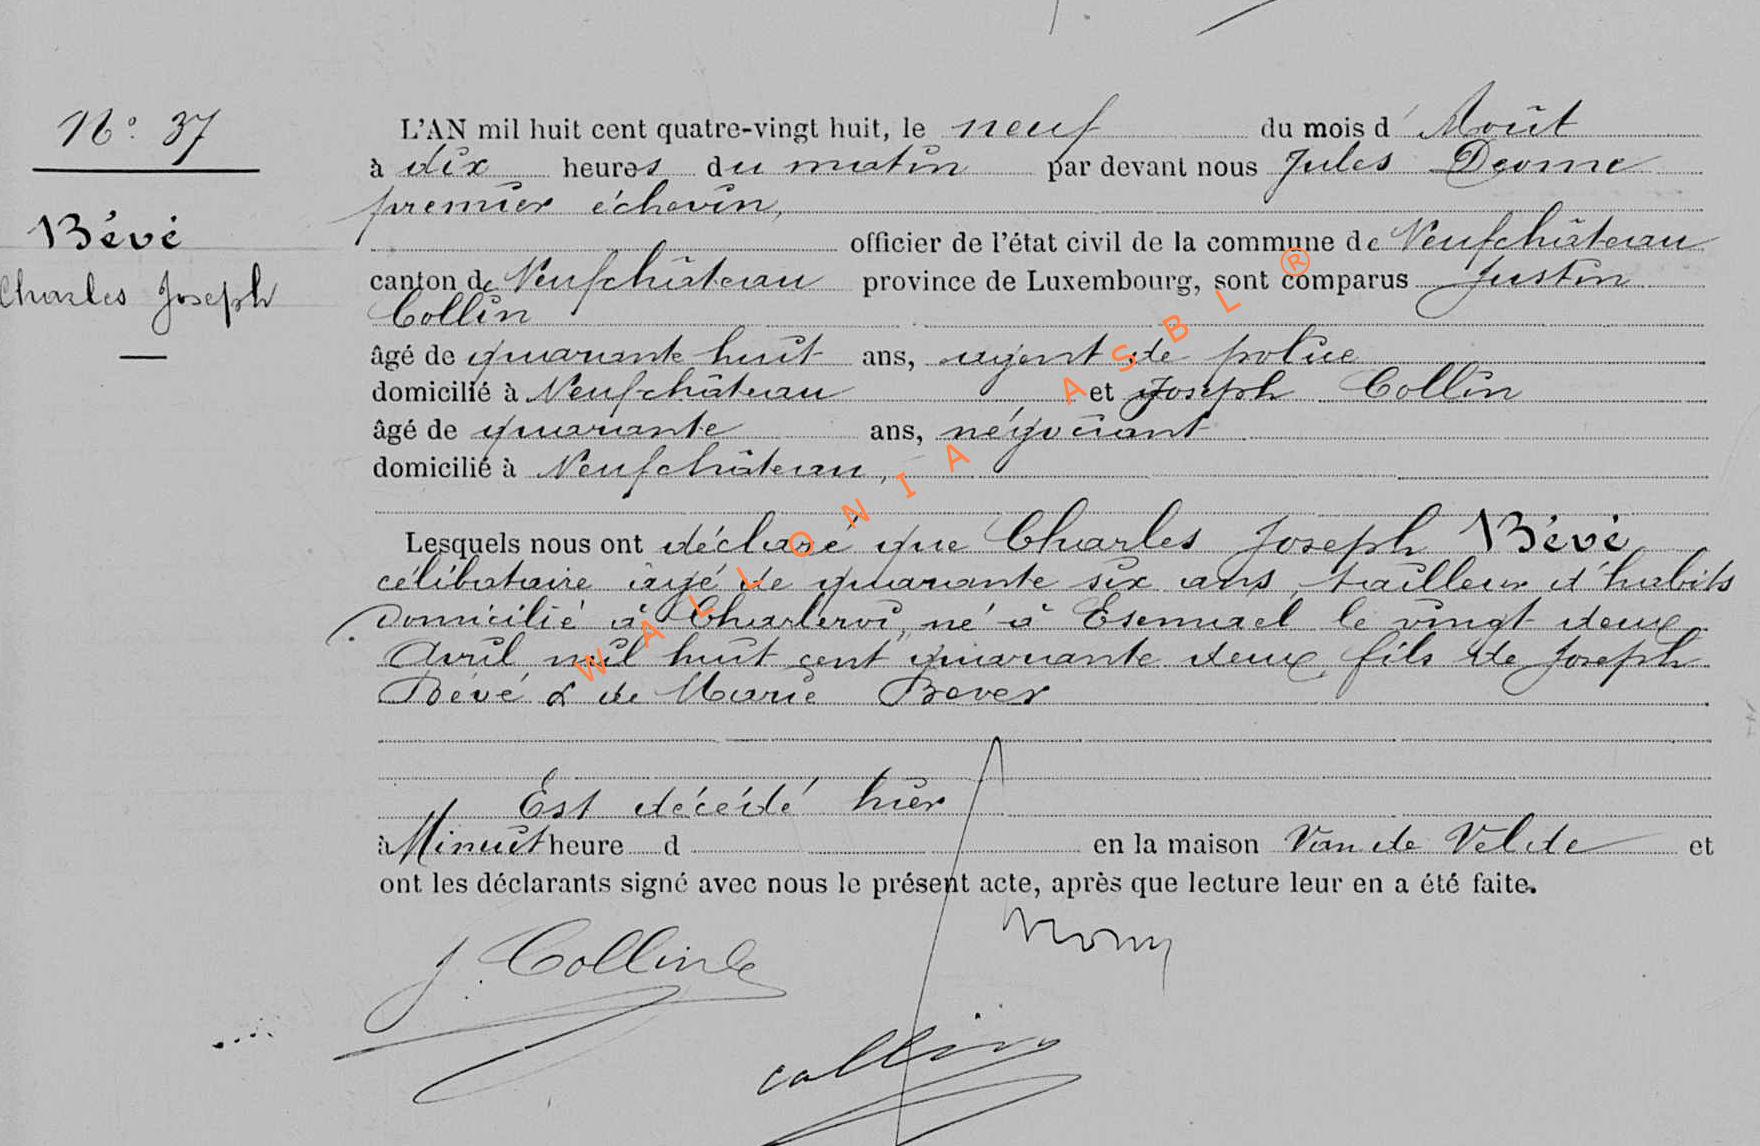 N° 37
Bévé
Charles Joseph
L'AN mil huit cent quatre-vingt huit, le neuf du mois d' Août
à dix heures du matin par devant nous Jules Deome
premier échevin,
officier de l'état civil de la commune de Neufchâteau
canton de Neufchâteau province de Luxembourg, sont comparus Justin
Collin
âgé de quarante huit ans, agent de police
domicilié à Neufchâteau et Joseph Collin
âgé de quarante ans, négociant
domicilié à Neufchâteau,
Lesquels nous ont déclaré que Charles Joseph Bévé
célibataire âgé de quarante six ans, tailleur d'habits
domicilié à Charleroi, né à Esemael le vingt deux
Avril mil huit cent quarante deux, fils de Joseph
Bévé & de Marie Bover
Est décédé hier
à Minuit heure d en la maison Van de Velde et
ont les déclarants signé avec nous le présent acte, après que lecture leur en a été faite.
J. Collin
collin
WALLONIA ASBL ®